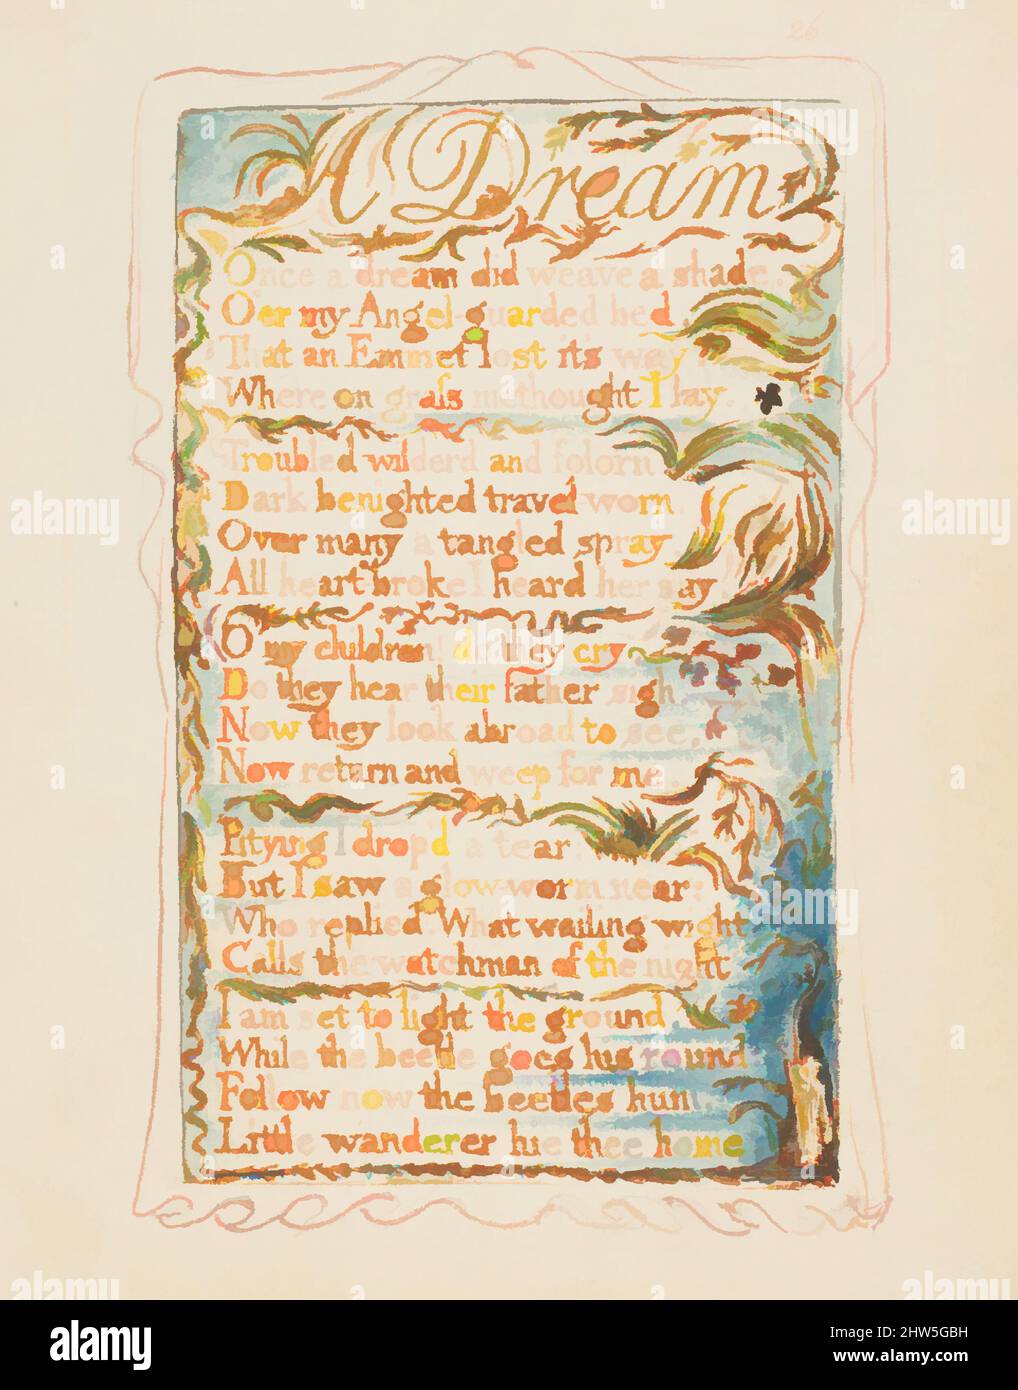 26
A Dream
Once a dream did weave a shade,
O'er my Angel-guarded bed,
That an Emmet lost its way
Where on grafs methought I lay.
Troubled wilderd and folorn
Dark benighted travel worn
Over many a tangled spray
All heart-broke I heard her say.
O my children! do they cry
Do they hear their father sigh
Now they look abroad to see,
Now return and weep for me.
Pitying I drop'd a tear:
But I saw a glow-worm near:
Who replied. What wailing wight
Calls the watchman of the night
I am set to light the ground
While the beetle goes his round
Follow now the beetles hum
Little wanderer hie thee home
alamy
Image ID: 2HW5GBH
www.alamy.com